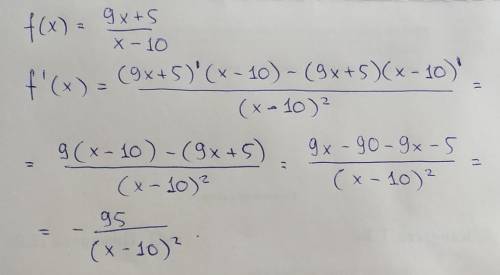 f(x) = (9x+5)/(x-10)
f'(x) = ((9x+5)'(x-10) - (9x+5)(x-10)')/(x-10)² =
= (9(x-10) - (9x+5))/(x-10)² = (9x-90-9x-5)/(x-10)² =
= - 95/(x-10)² .